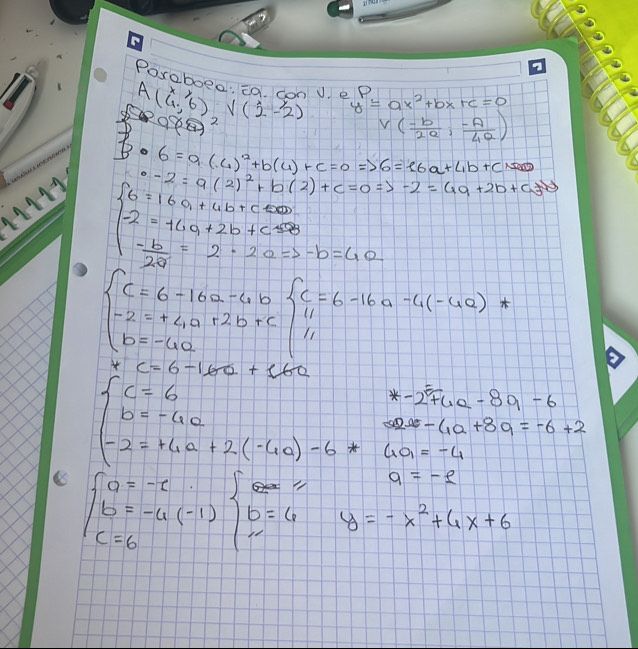 Parabola: Eq. con V. e P
A(4,6) V(2-2) y=ax²+bx+c=0
V(-b/2a, -Δ/4a)
• 6=a(4)²+b(4)+c=0=>6=16a+4b+c
• -2=a(2)²+b(2)+c=0=>-2=4a+2b+c
{6=16a+4b+c
-2=+4a+2b+c
-b/2a = 2·2a=>-b=4a
{c=6-16a-4b {c=6-16a-4(-4a) *
-2=+4a+2b+c "
b=-4a "
* c=6-16a+16a
{c=6 *-2=+4a-8a-6
b=-4a -4a+8a=-6+2
-2=+4a+2(-4a)-6 * 4a=-4
a=-1
{a=-1 { "
b=-4(-1) b=4 y=-x²+4x+6
c=6 "